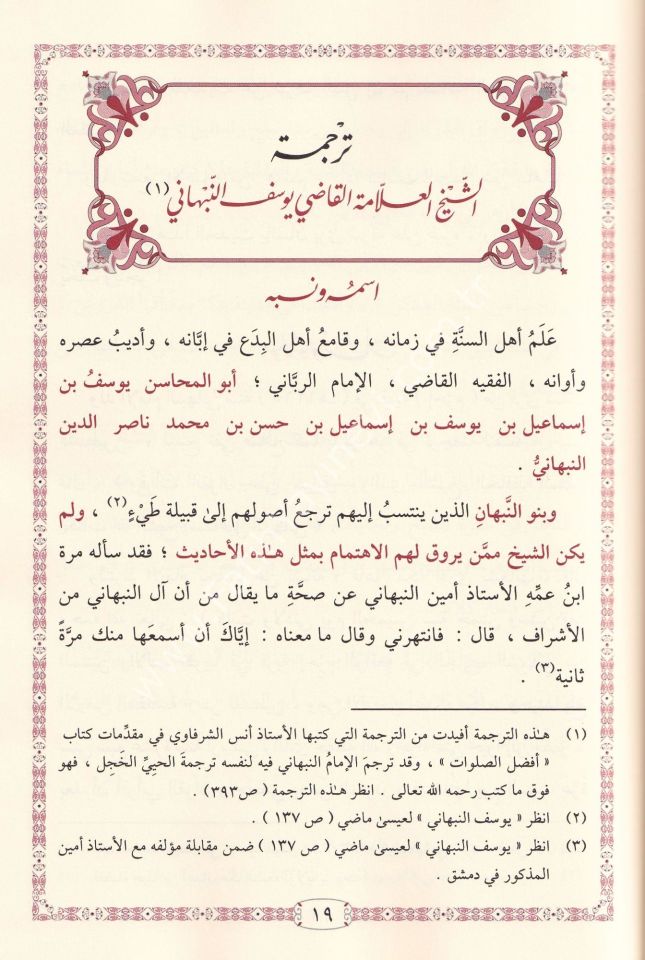 ترجمة
الشيخ العلامة القاضي يوسف النبهاني (١)
اسمه ونسبه
عَلَمُ أهل السنَّةِ في زمانه ، وقامعُ أهل البِدَع في إبَّانه ، وأديبُ عصره
وأوانه ، الفقيه القاضي ، الإمام الربَّاني ؛ أبو المحاسن يوسفُ بن
إسماعيل بن يوسف بن إسماعيل بن حسن بن محمد ناصر الدين
النبهانيُّ .
وبنو النَّبهانِ الذين ينتسبُ إليهم ترجعُ أصولهم إلىٰ قبيلة طَيْءٍ(٢) ، ولم
يكن الشيخ ممَّن يروق لهم الاهتمام بمثل هـٰذه الأحاديث ؛ فقد سأله مرة
ابنُ عمِّهِ الأستاذ أمين النبهاني عن صحَّةِ ما يقال من أن آل النبهاني من
الأشراف ، قال : فانتهرني وقال ما معناه : إيَّاكَ أن أسمعَها منك مرَّةً
ثانية(٣) .
(١) هـٰذه الترجمة أفيدت من الترجمة التي كتبها الأستاذ أنس الشرفاوي في مقدِّمات كتاب
« أفضل الصلوات » ، وقد ترجمَ الإمامُ النبهاني فيه لنفسه ترجمةَ الحييِّ الخَجِل ، فهو
فوق ما كتب رحمه الله تعالى . انظر هـٰذه الترجمة ( ص٣٩٣) .
(٢) انظر « يوسف النبهاني » لعيسىٰ ماضي ( ص ١٣٧ ) .
(٣) انظر « يوسف النبهاني » لعيسىٰ ماضي ( ص ١٣٧ ) ضمن مقابلة مؤلفه مع الأستاذ أمين
المذكور في دمشق .
١٩